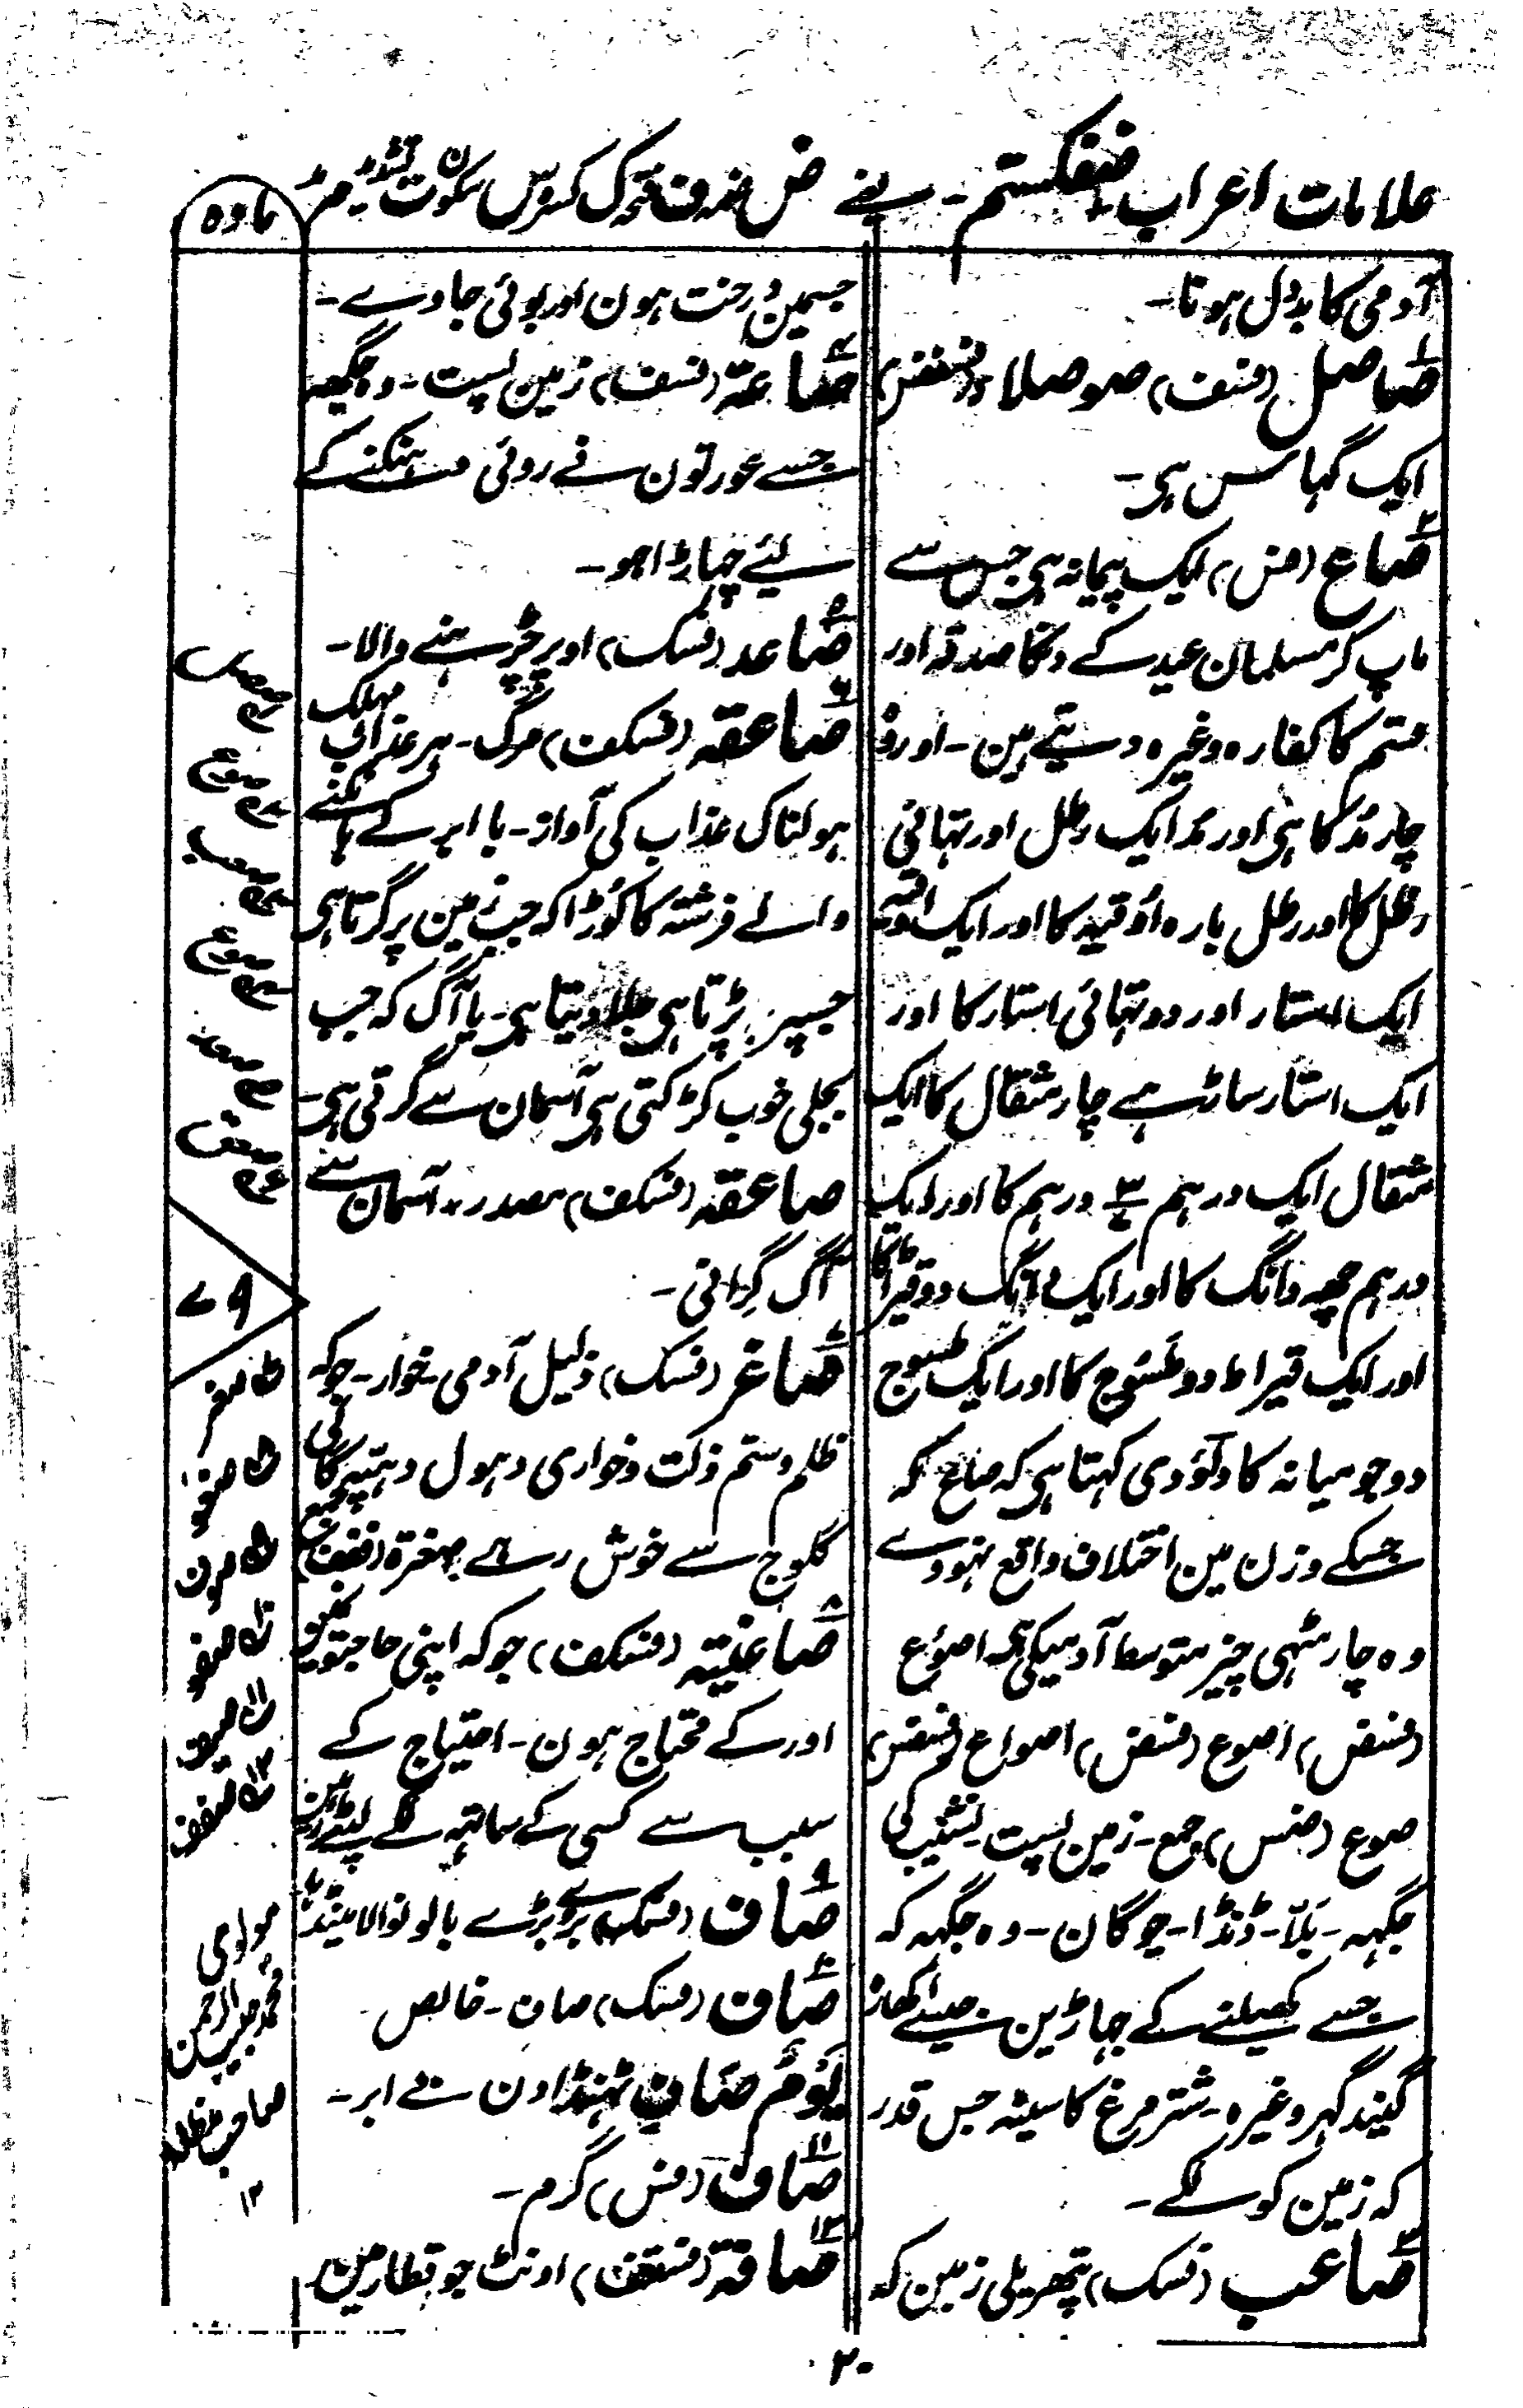 علامات اعراب ضفکستم - یعنے ض ضمہ ف فتحہ ک کسرہ س سکون ت تشدید م مد
مادہ
آدمی کا بددل ہونا -
صَاصل (فسف) صوصلاء (فسففس)
ایک گہاس ہی -
صَاع (فس) ایک پیمانہ ہی جس سے
ماپ کر مسلمان عید کے دنکا صدقہ اور
قسم کا کفارہ وغیرہ دیتے ہین - اور وہ
چار مُد کا ہی اور مُد ایک رطل اور تہائی
رطل کا اور رطل بارہ اوقیہ کا اور ایک اوقیہ
ایک استار اور دو تہائی استار کا اور
ایک استار ساڑہے چار مثقال کا ایک
مثقال ایک درہم ۳/۷ درہم کا اور ایک
درہم چھہ دانگ کا اور ایک دانگ دو قیراط کا
اور ایک قیراط دو طسوج کا اور ایک طسوج
دو جو میانہ کا داؤدی کہتا ہی کہ صاع کہ
جسکے وزن مین اختلاف واقع نہووے
وہ چار مٹہی چیز متوسط آدمیکی ہی اصوُع
(فسضس) اصوع (فسضس) اصواع (فسفس)
صوع (ضس) جمع - زمین پست نشیب کی
جگہہ - بَلّا - ڈنڈا - چوگان - وہ جگہہ کہ
جسے کھیلنے کے جہاڑین جیسے اکھاڑہ
گیند گہر وغیرہ - شتر مرغ کا سینہ جس قدر
کہ زمین کو لگے -
صَاعب (فسک) پتھریلی زمین کہ
جسمین درخت ہون اور بوئی جاوے -
صَاعۃ (فسف) زمین پست - وہ جگہہ
جسے عورتون نے روئی دہنکنے کے
لئے جہاڑا ہو -
صَاعد (فسک) اوپر چڑہنے والا -
صَاعقہ (فسکف) مرگ - ہر عذاب مہلک
ہولناک عذاب کی آواز - یا ابر کے ہانکنے
والے فرشتہ کا کوڑا کہ جب زمین پر گرتا ہی
جسپر پڑتا ہی جلا دیتا ہی - یا آگ کہ جب
بجلی خوب کڑکتی ہی آسمان سے گرتی ہی -
صاعقہ (فسکف) مصدر - آسمان سے
آگ گرانی -
صَاغر (فسک) ذلیل آدمی - خوار - جو کہ
ظلم و ستم ذلت و خواری دہول دہپہ گالی
گلوج سے خوش رہے صغرۃ (ففف) جمع
صَاغیۃ (فسکف) جو کہ اپنی حاجتو
اور کے محتاج ہون - احتیاج کے
سبب سے کسی کے ساتھہ لگے لپٹے رہین
صَاف (فسک) بڑے بڑے بالونوالا مینڈہا
صَاف (فسک) صاف - خالص
یَوْمٌ صَافٍ ٹہنڈا دن بے ابر -
صَاف (فس) گرم -
صَافۃ (فستف) اونٹ جو قطار مین
صعد
صعق
۷۹
صغر
صغو
صوف
صفو
صیف
صفف
مولوی
محمد حبیب الرحمن
صاحب مدظلہ
۱۲
۲۰